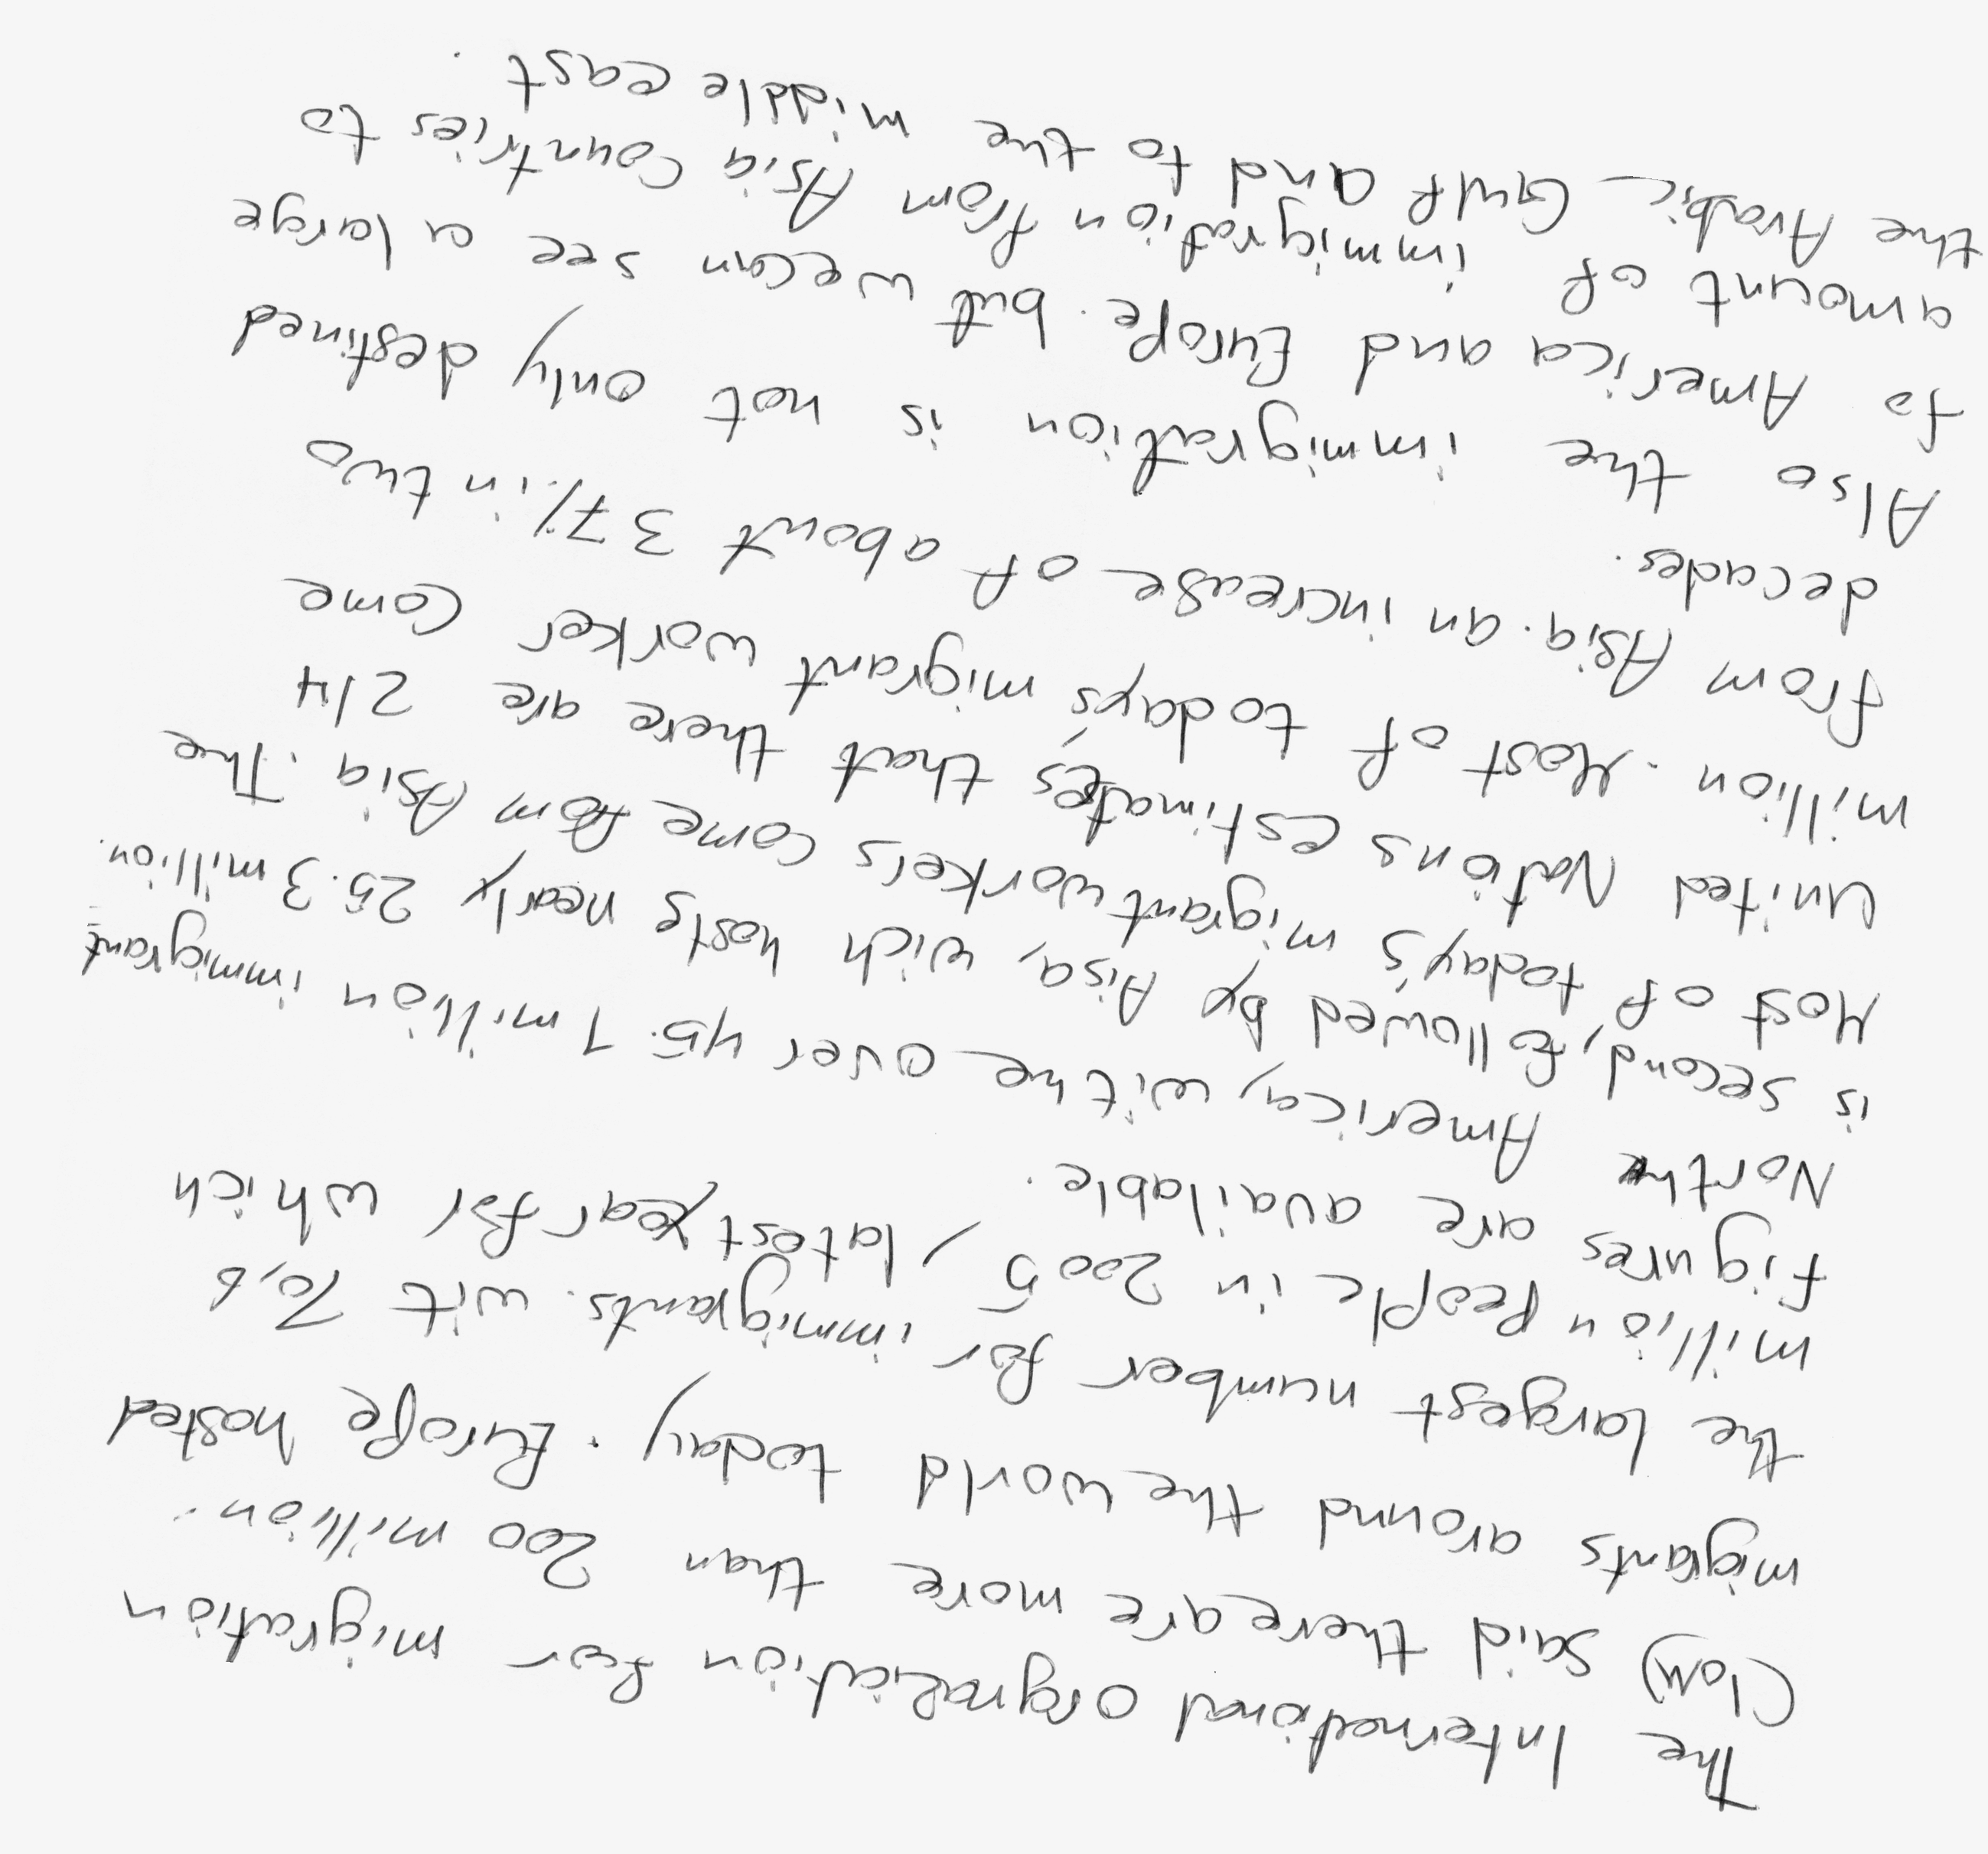 The International orgnalication for migration
(Iom) said there are more than 200 million.
migrants around the world today. Europe hosted
the largest number for immigrants. wit 70,6
million People in 2005, latest year for which
figures are available.
North America, withe over 45.1 million immigrant
is second, followed by Aisa, wich hosts nearly 25.3 million.
Most of today's migrant workers come from Asia. The
United Nations estimates that there are 214
million. Most of today's migrant worker come
from Asia. an increase of about 37% in two
decades.
Also the immigration is not only destined
to America and Europe. but we can see a large
amount of immigration from Asia countries to
the Arabic Gulf and to the middle east.